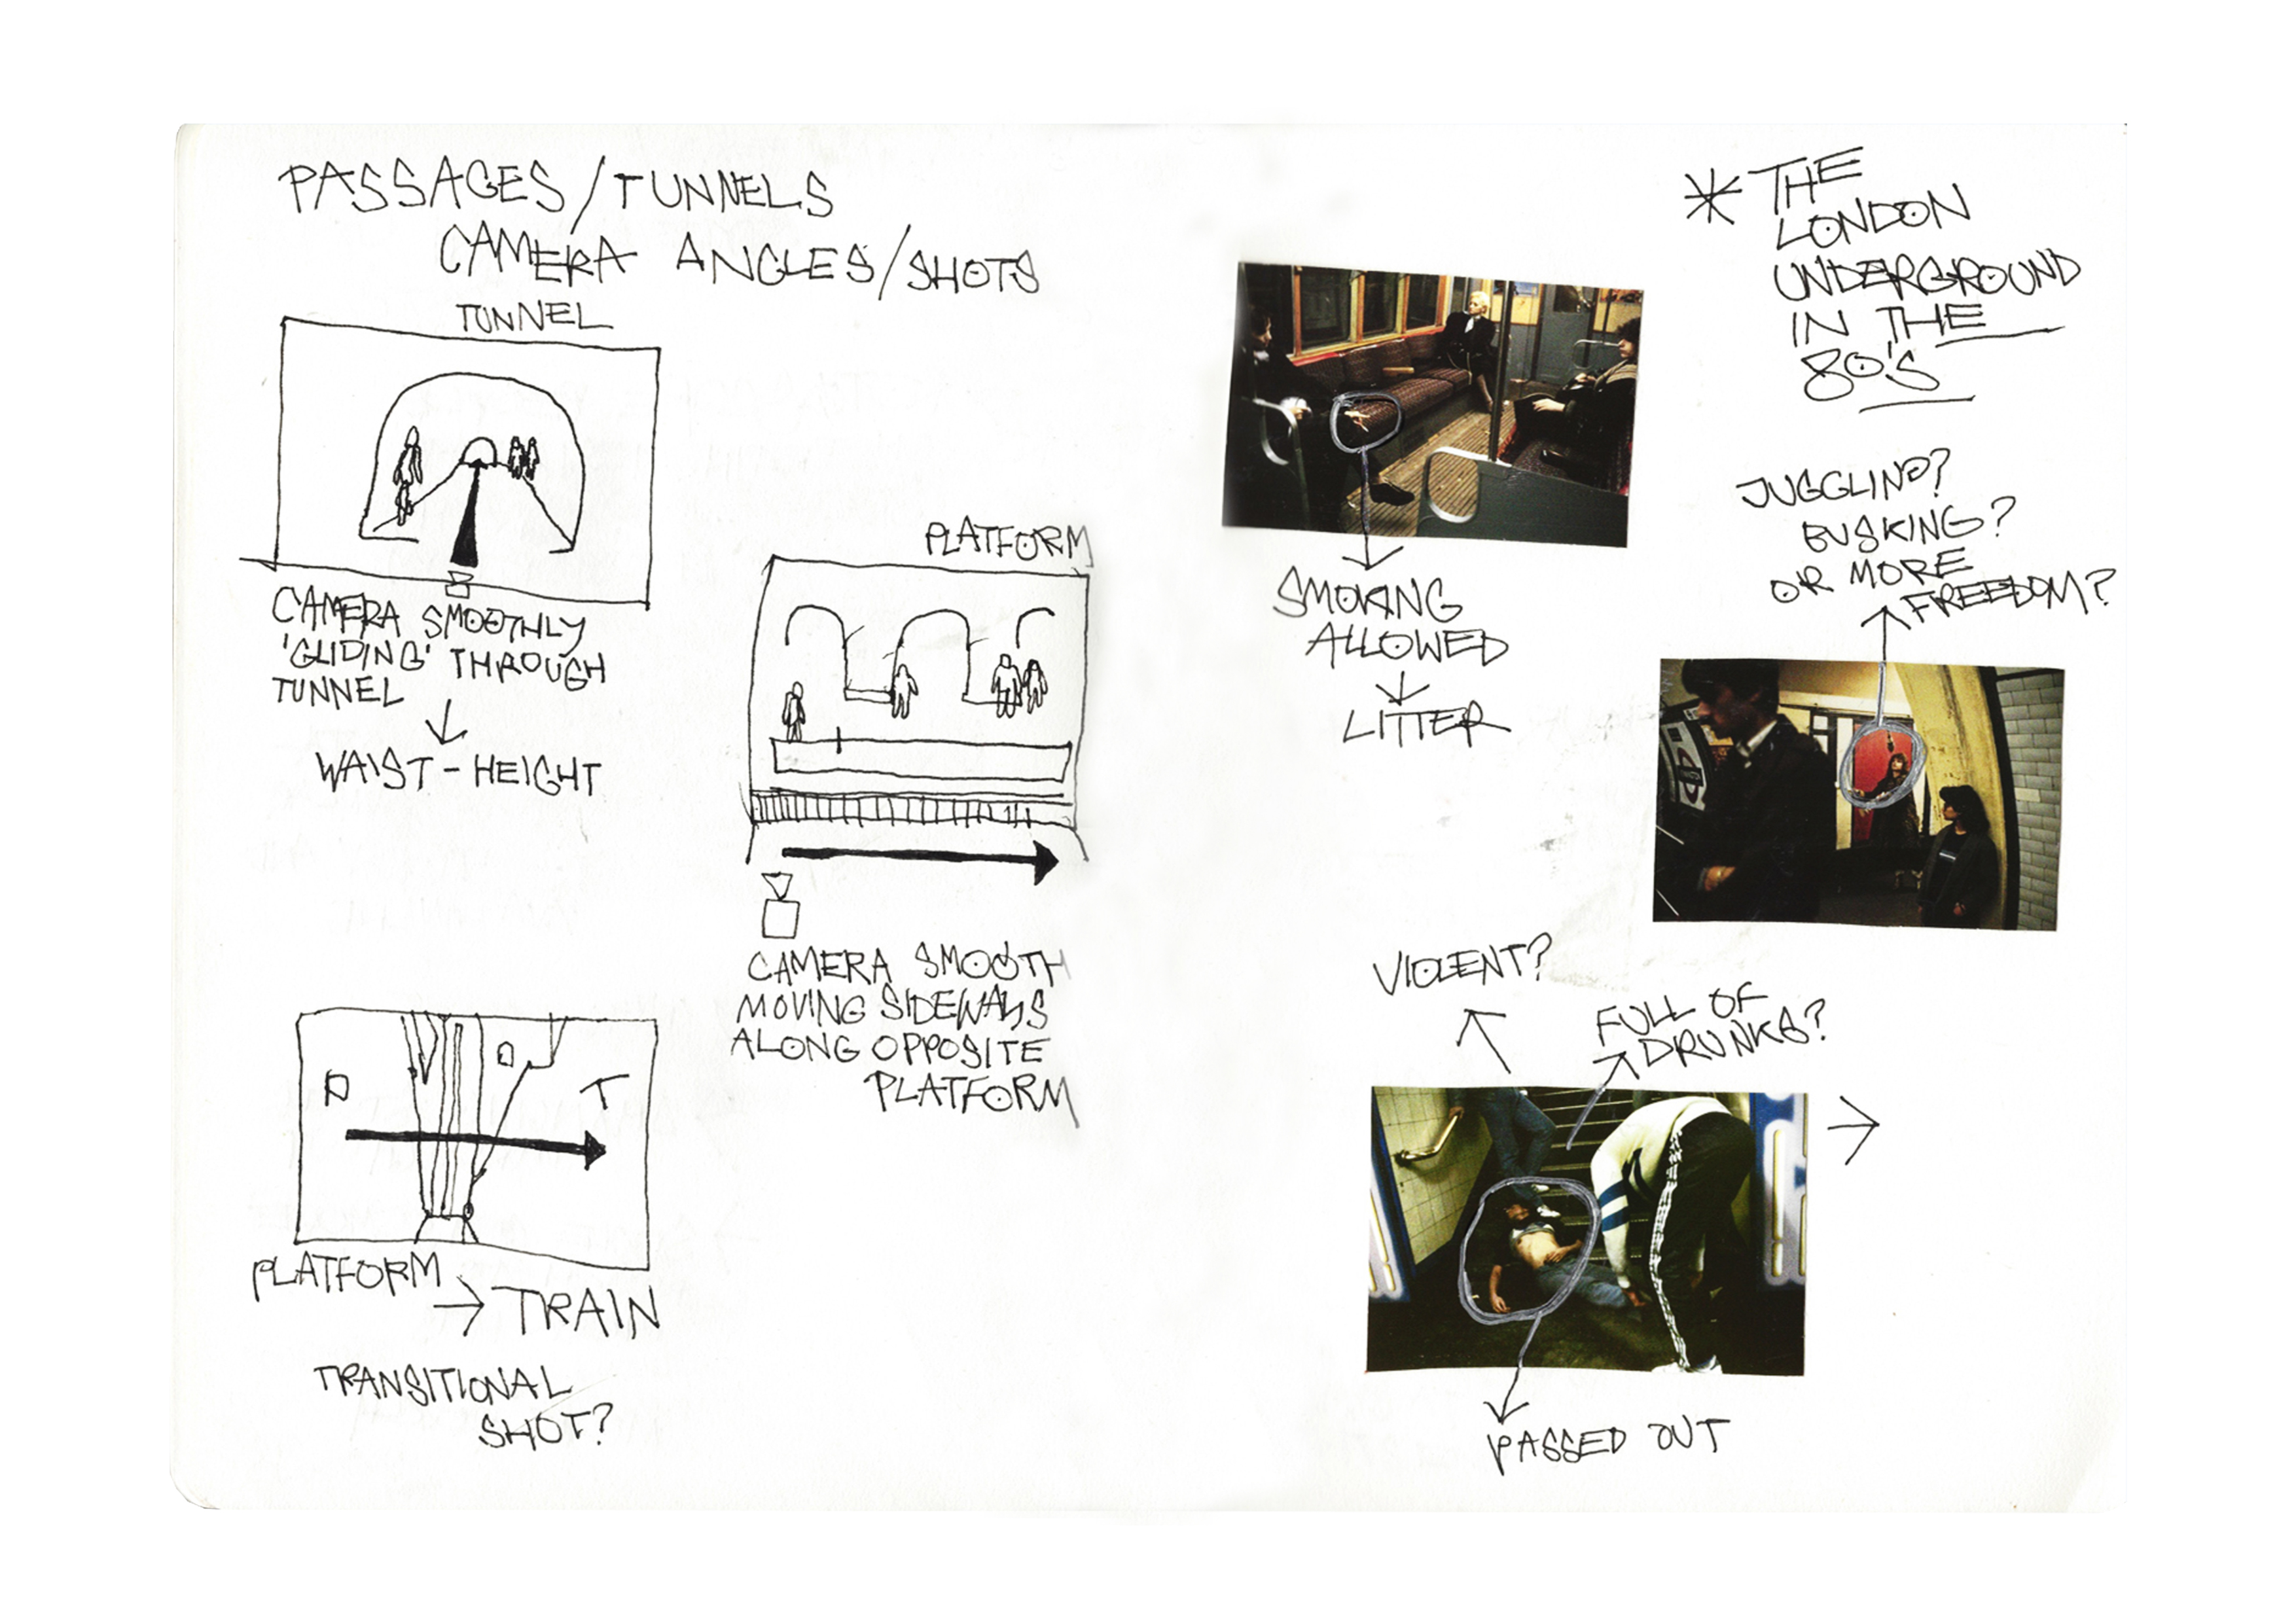 PASSAGES/TUNNELS
CAMERA ANGLES/SHOTS
TUNNEL
CAMERA SMOOTHLY
'GLIDING' THROUGH
TUNNEL
WAIST-HEIGHT
PLATFORM
CAMERA SMOOTH
MOVING SIDEWAYS
ALONG OPPOSITE
PLATFORM
P
T
PLATFORM
→ TRAIN
TRANSITIONAL
SHOT?
* THE
LONDON
UNDERGROUND
IN THE
80'S
SMOKING
ALLOWED
LITTER
JUGGLING?
BUSKING?
OR MORE
FREEDOM?
VIOLENT?
FULL OF
DRUNKS?
PASSED OUT